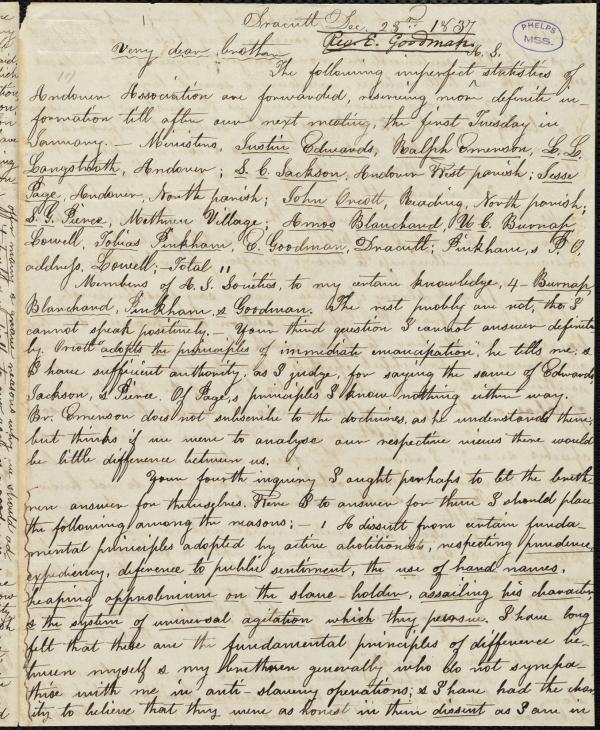 Dracutt Dec. 28th 1837
Rev. E. Goodman.
PHELPS
MSS.
Very dear brother
A. S.
The following imperfect statistics of
Andover Association are forwarded, reserving more definite in-
formation till after our next meeting, the first Tuesday in
January. — Ministers, Justin Edwards, Ralph Emerson, L. L.
Langstroth, Andover; S. C. Jackson, Andover West parish; Jesse
Page, Andover, North parish; John Orcott, Reading, North parish;
S. G. Pierce, Methuen Village; Amos Blanchard, U. C. Burnap
Lowell, Tobias Pinkham, E. Goodman, Dracutt; Pinkham,s P. O.
address, Lowell; Total 11
Members of A. S. Societies, to my certain knowledge, 4 - Burnap,
Blanchard, Pinkham, & Goodman. The rest probly are not, tho' I
cannot speak positively. — Your third question I cannot answer definite
ly. Orcott "adopts the principles of immediate emancipation" he tells me, &
I have sufficient authority, as I judge, for saying the same of Edwards,
Jackson, & Pierce. Of Page,s principles I know nothing either way.
Br. Emerson does not subscribe to the doctrines, as he understands them;
but thinks if we were to analyse our respective views there would
be little difference between us.
Your fourth inquiry I ought perhaps to let the breth-
ren answer for themselves. Were I to answer for them I should place
the following among the reasons; — 1 A dissent from certain funda-
mental principles adopted by active abolitionists, respecting prudence,
expediency, deference to public sentiment, the use of hard names,
heaping opprobrium on the slave-holder, assailing his character,
& the system of universal agitation which they persue. I have long
felt that these are the fundamental principles of difference be-
tween myself & my brethren generally who do not sympa-
thise with me in anti-slavery operations; & I have had the char-
ity to believe that they were as honest in their dissent as I am in